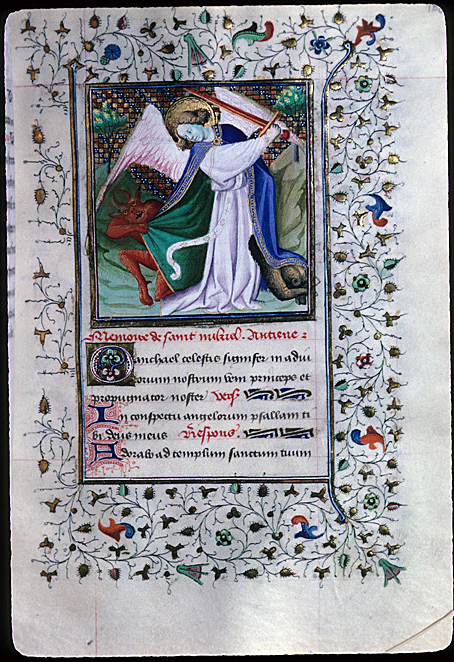 Memoire de saint michel. Antiene
O michael celestis signifer in adiu
torium nostrum veni princeps et
propugnator noster vers
In conspectu angelorum psallam ti
bi deus meus Respons
Adorabo ad templum sanctum tuum